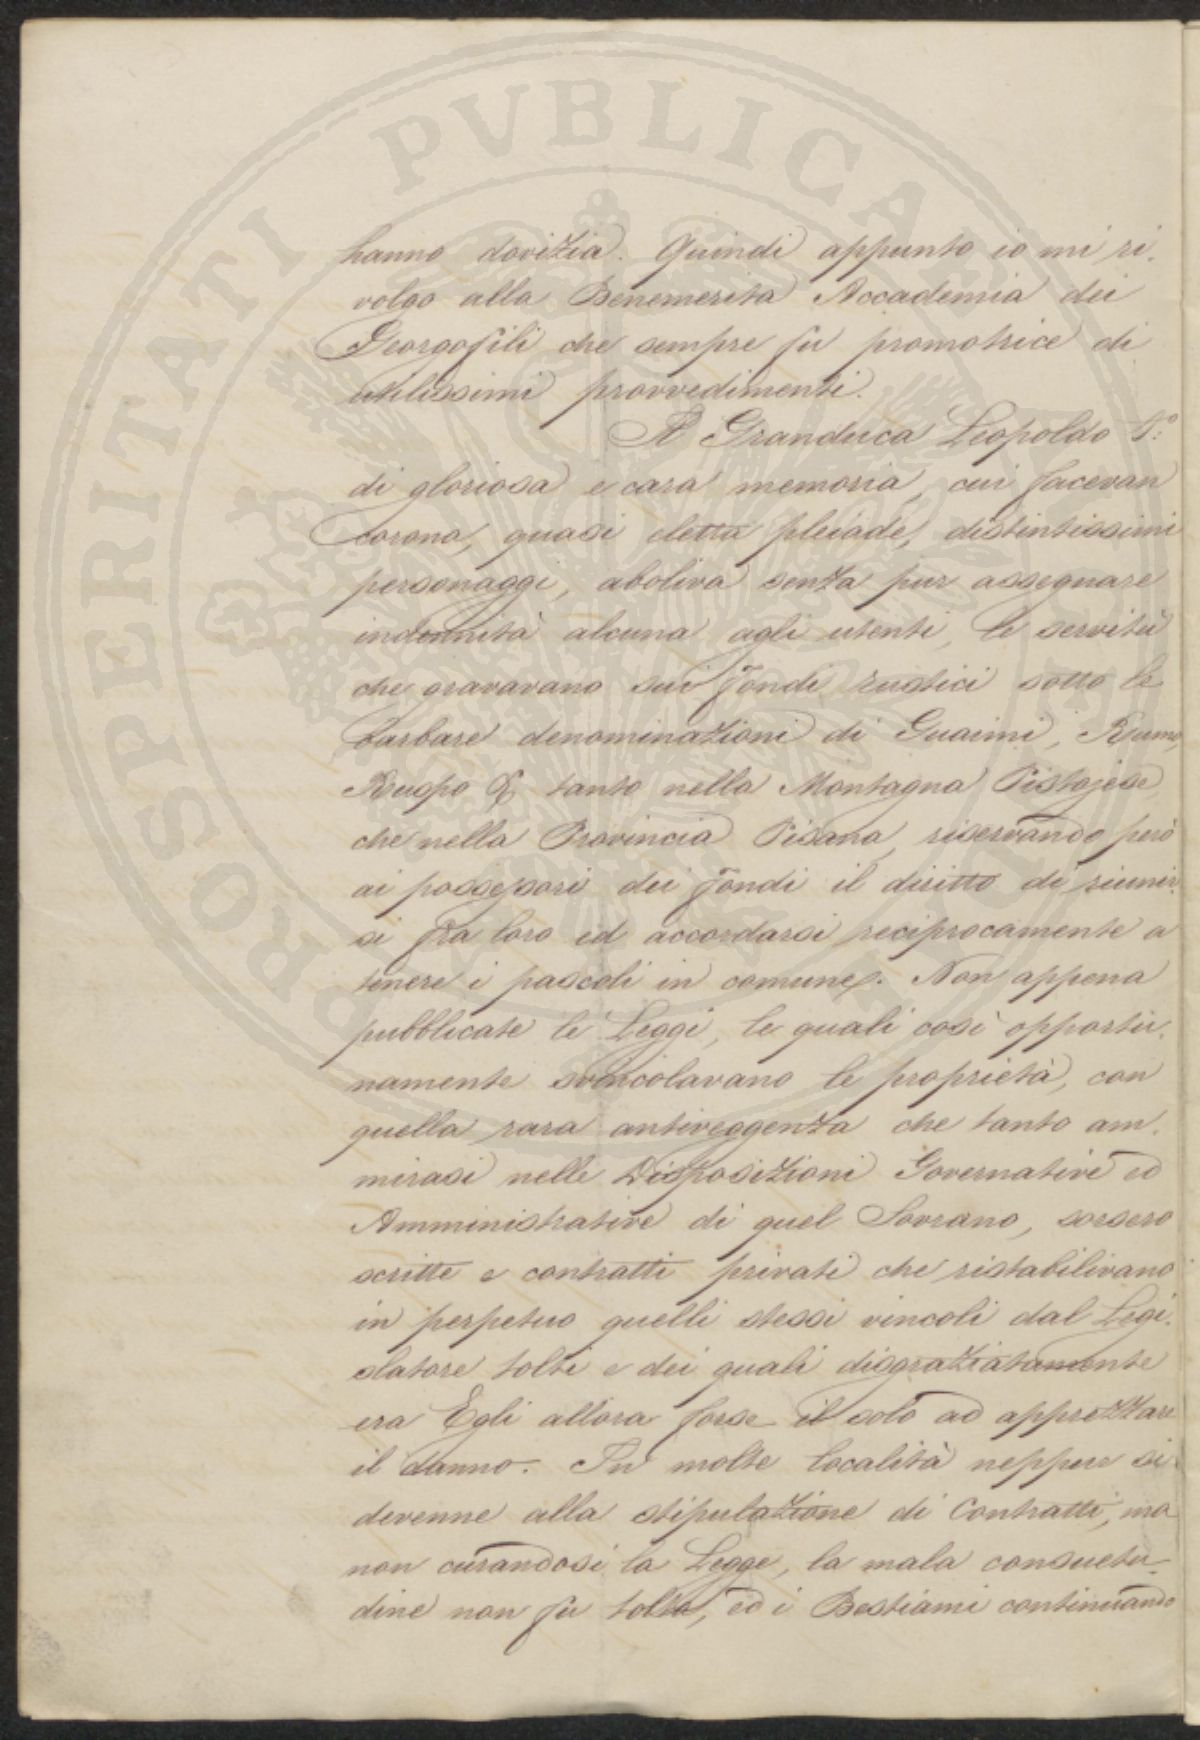 PROSPERITATI PUBLICAE AUGENDAE
hanno dovizia. Quindi appunto io mi ri-
volgo alla Benemerita Accademia dei
Georgofili che sempre fu promotrice di
utilissimi provvedimenti.
Il Granduca Leopoldo I.º
di gloriosa e cara memoria, cui facevan
corona, quasi eletta pleiade, distintissimi
personaggi, aboliva senza pur assegnare
indennità alcuna agli utenti, le servitù
che gravavano sui fondi rustici sotto le
barbare denominazioni di Guaimi,
Ruspo & tanto nella Montagna Pistojese
che nella Provincia Pisana, riservando però
ai possessori dei fondi il diritto di riunir-
si fra loro ed accordarsi reciprocamente a
tenere i pascoli in comune. Non appena
pubblicate le Leggi, le quali così opportu-
namente svincolavano le proprietà, con
quella rara antiveggenza che tanto am-
mirasi nelle Disposizioni Governative ed
Amministrative di quel Sovrano, sorsero
scritte e contratti privati che ristabilivano
in perpetuo quelli stessi vincoli dal Legi-
slatore tolti e dei quali disgraziatamente
era Egli allora forse il solo ad apprezzare
il danno. In molte località neppur si
devenne alla stipulazione di Contratti, ma
non curandosi la Legge, la mala consuetu-
dine non fu tolta, ed i Bestiami continuando